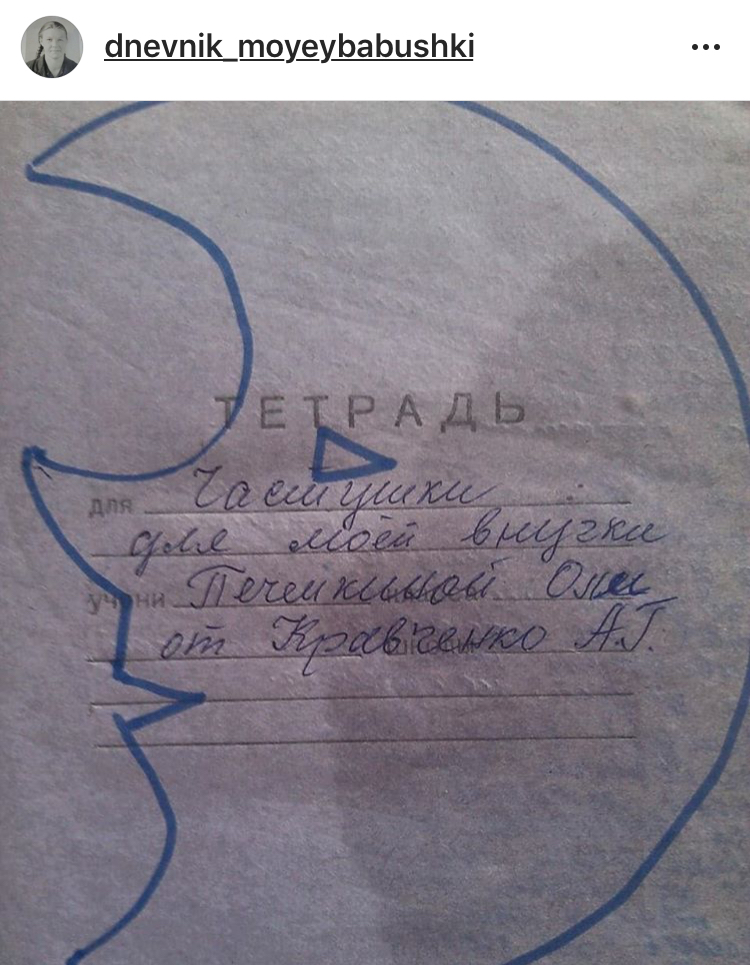 dnevnik_moyeybabushki
ТЕТРАДЬ
для Частушки
для моей внучки
учени Печенкиной Оли
от Кравченко А.Г.